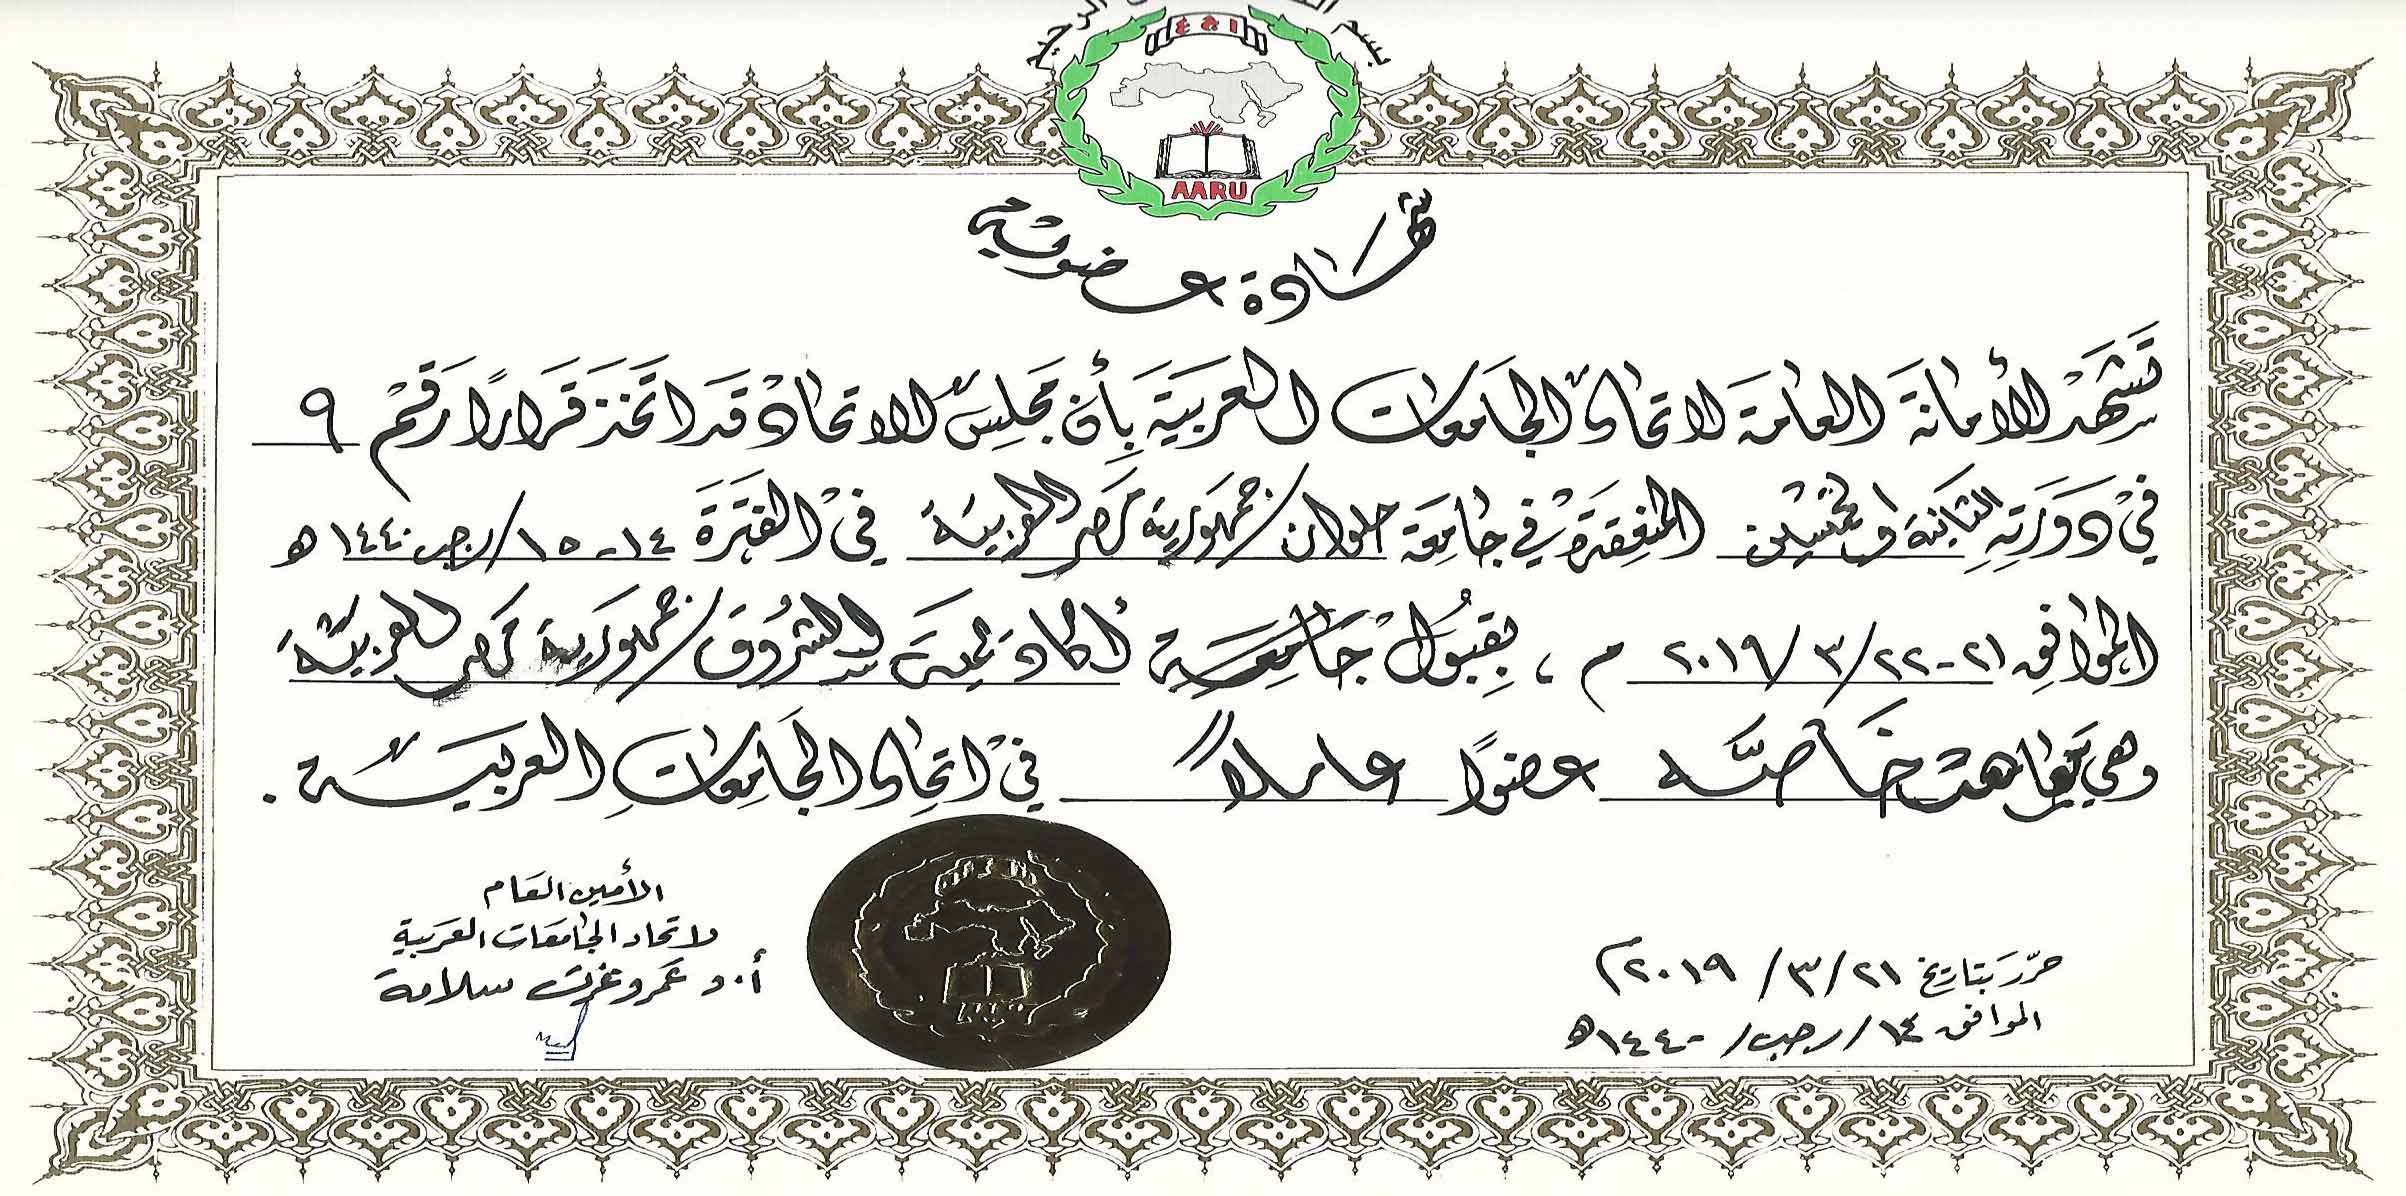 بسم الله الرحمن الرحيم
ا ع ج ع
AARU
شهادة عضوية
تَشهَدُ الأمانَة العامَة لاتحاد الجَامعَات العَربيَة بَأن مجَلِسُ الاتحادْ قَد اتخَذ قَرارًا رَقمْ ٩
فيْ دَورَتِهِ الثانية والخمسين المنعقدَة في جَامعَة حلوان / جمهورية مصر العربية فيْ الفترَة ١٤-١٥/رجب/١٤٤٠ هـ
الموافِق ٢١-٢٢/٣/٢٠١٩ م ، بِقبُول جَامِعَة أكاديمية الشروق / جمهورية مصر العربية
وهي جامعة خاصة عضوًا عاملاً فيْ اتحاد الجَامِعَاتِ العربيَة .
الأمين العَام
لاتحاد الجامعَات العَربية
أ.د عَمرو عزت سلامة
حرّرَ بتاريخ ٢١/٣/٢٠١٩م
الموافق ١٤/رجب/١٤٤٠هـ